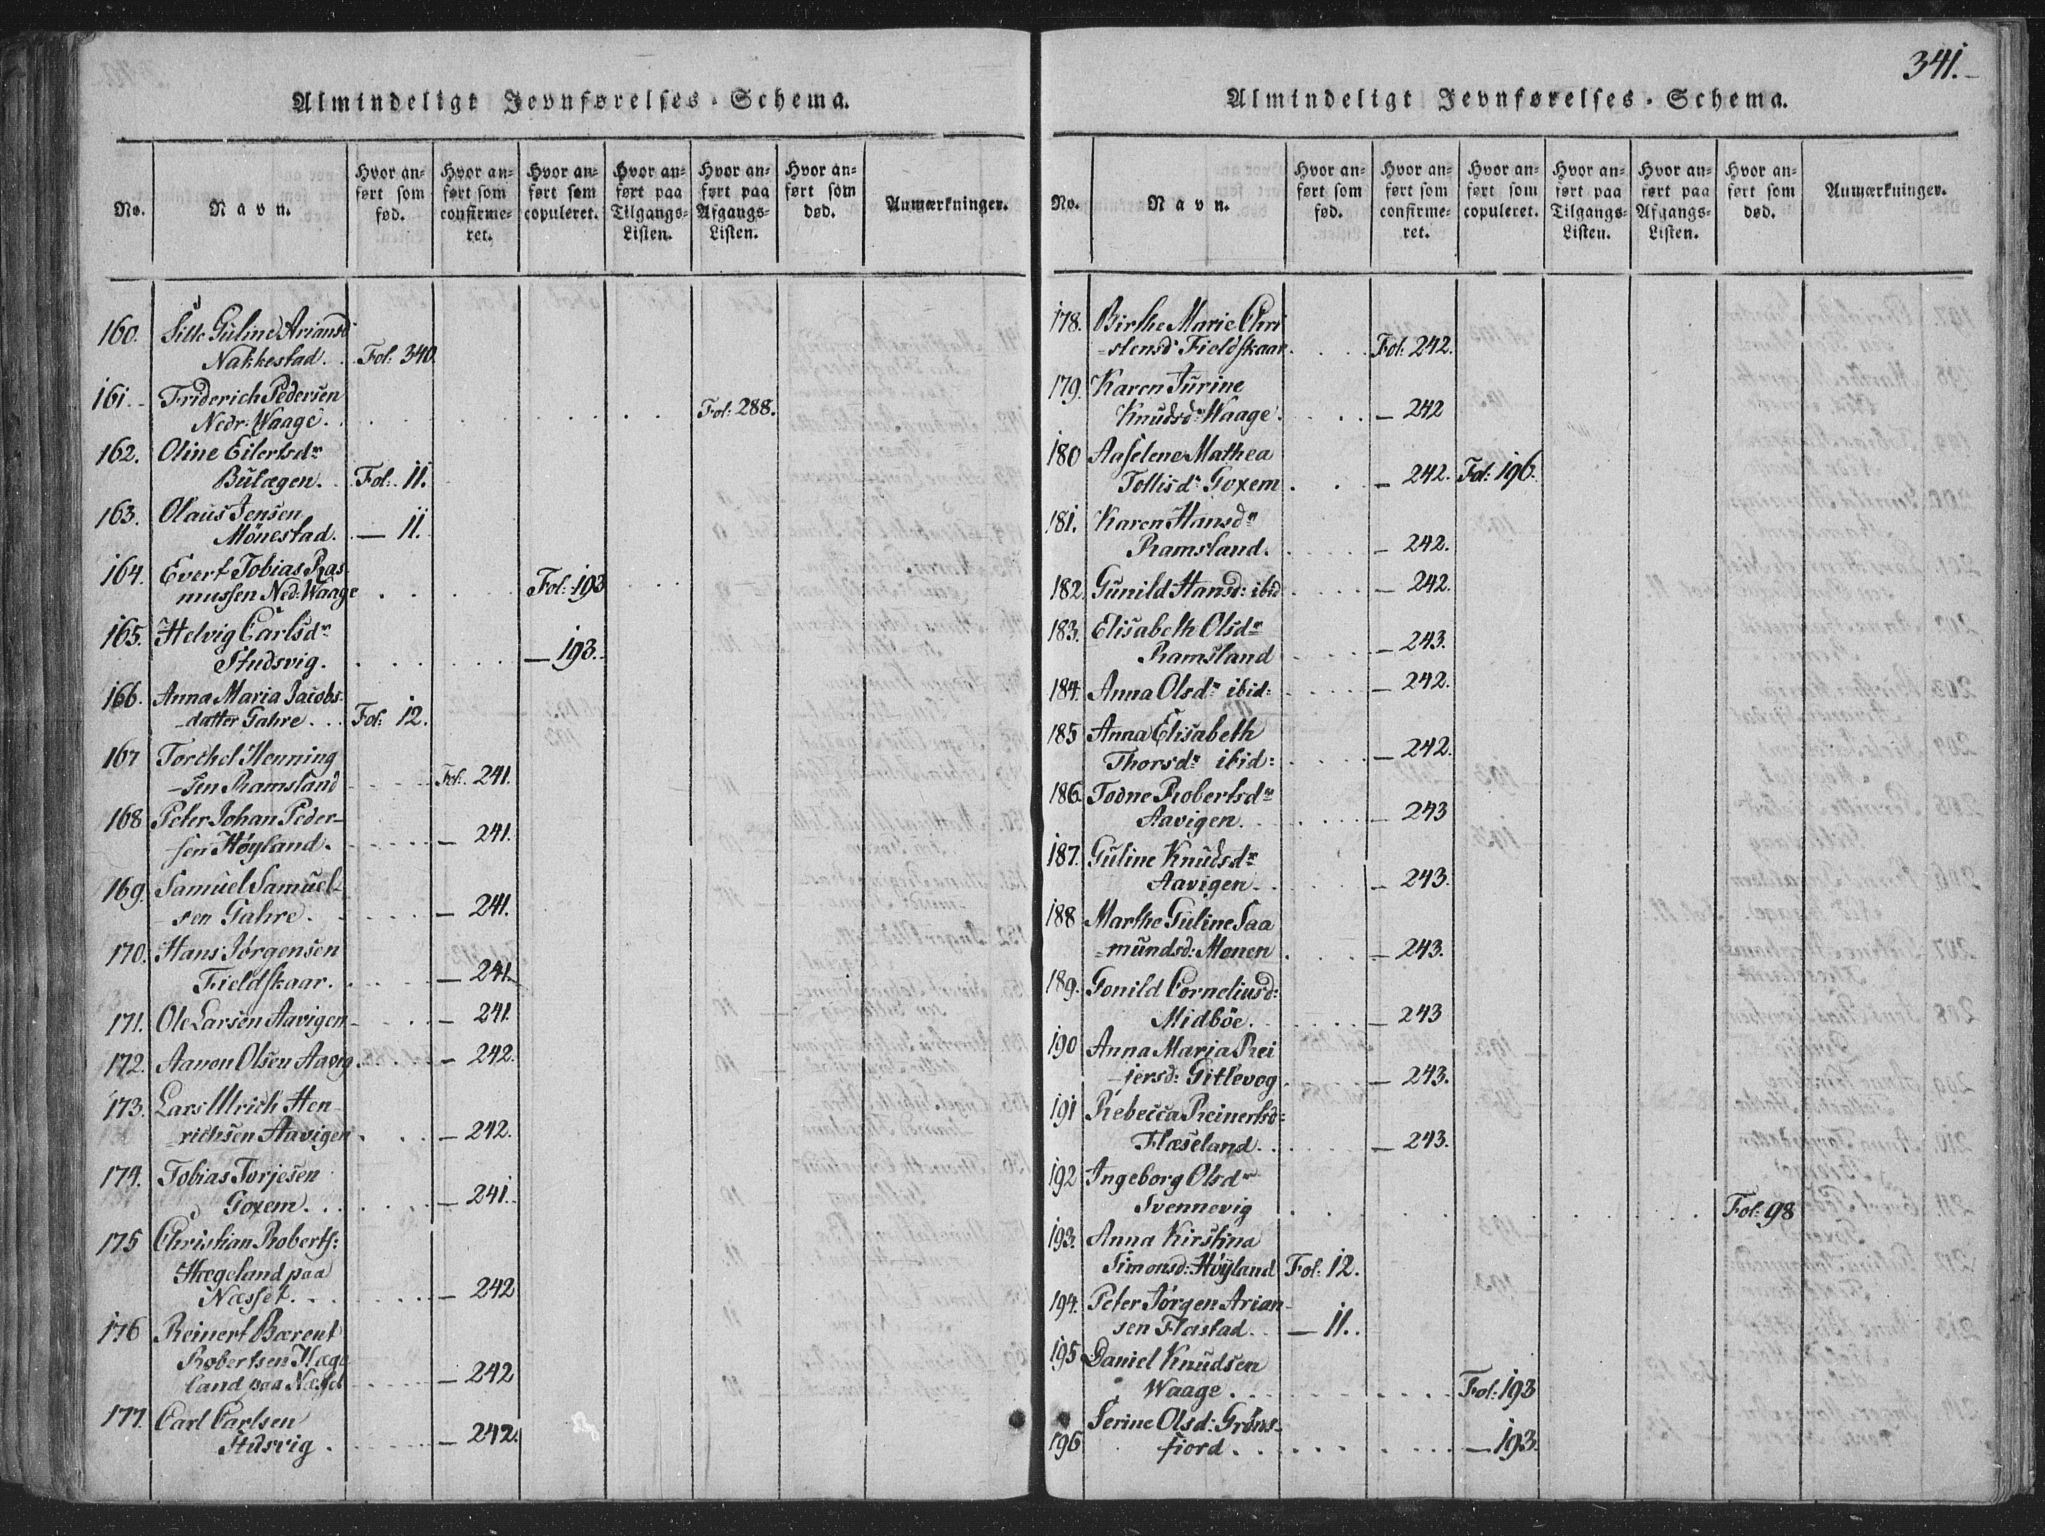 341.
Almindeligt Jevnførelses-Schema.
No. Navn. Hvor anført som fød. Hvor anført som confirmeret. Hvor anført som copuleret. Hvor anført paa Tilgangs-Listen. Hvor anført paa Afgangs-Listen. Hvor anført som død. Anmærkninger.
160. Sille Guline Ariansd
Nakkestad. Fol: 340.
161. Friderich Pedersen
Nedr: Waage. Fol: 288.
162. Oline Eilertsdr
Bulægen. Fol: 11.
163. Olaus Jensen
Mönestad. — 11.
164. Evert Tobias Ras
mussen Ned: Waage Fol: 193
165. Helvig Carlsdr
Studsvig. — 193.
166. Anna Maria Jacobs-
datter Gahre. Fol: 12.
167 Torchel Henning
-sen Ramsland Fol: 241.
168 Peter Johan Peder-
sen Høyland. — 241.
169. Samuel Samuel-
sen Gahre. — 241.
170. Hans Jørgensen
Fieldskaar. — 241.
171. Ole Larsen Aavigen — 241.
172. Aanon Olsen Aavig — 242.
173. Lars Ulrich Hen-
richsen Aavigen — 242.
174. Tobias Torjesen
Goxem. — 241.
175 Christian Roberts:
Hægeland paa
Næsset. — 242
176 Reinert Barent
Robertsen Hæge
land paa Næsset — 242
177. Carl Carlsen
Stusvig. — 242.
Almindeligt Jevnførelses-Schema.
No. Navn. Hvor anført som fød. Hvor anført som confirmeret. Hvor anført som copuleret. Hvor anført paa Tilgangs-Listen. Hvor anført paa Afgangs-Listen. Hvor anført som død. Anmærkninger.
178. Birthe Marie Chri
-stensd: Fieldskaar. Fol: 242.
179. Karen Jurine
Knudsdr Waage. — 242
180 Aaselene Mathea
Tollisd: Goxem — 242. Fol: 196.
181. Karen Hansdr
Ramsland. — 242.
182. Gunild Hansd: ibid — 242.
183. Elisabeth Olsdr
Ramsland — 243.
184. Anna Olsdr ibid: — 242.
185 Anna Elisabeth
Thorsdr ibid: — 242.
186. Todne Robertsdr
Aavigen. — 243
187. Guline Knudsdr
Aavigen. — 243.
188 Marthe Guline Saa
-mundsd: Monen — 243.
189. Gonild Corneliusd:
Midböe. — 243
190 Anna Maria Rei
-jersd: Gitlevog — 243.
191 Rebecca Reinertsd:
Flæseland. — 243.
192 Ingeborg Olsdr
Svennevig Fol: 98
193. Anna Kirstina
Simonsd: Høÿland Fol: 12.
194. Peter Jørgen Arian-
sen Flastad. — 11.
195 Daniel Knudsen
Waage. Fol: 193
196 Serine Olsd: Gröns-
fiord. — 193.